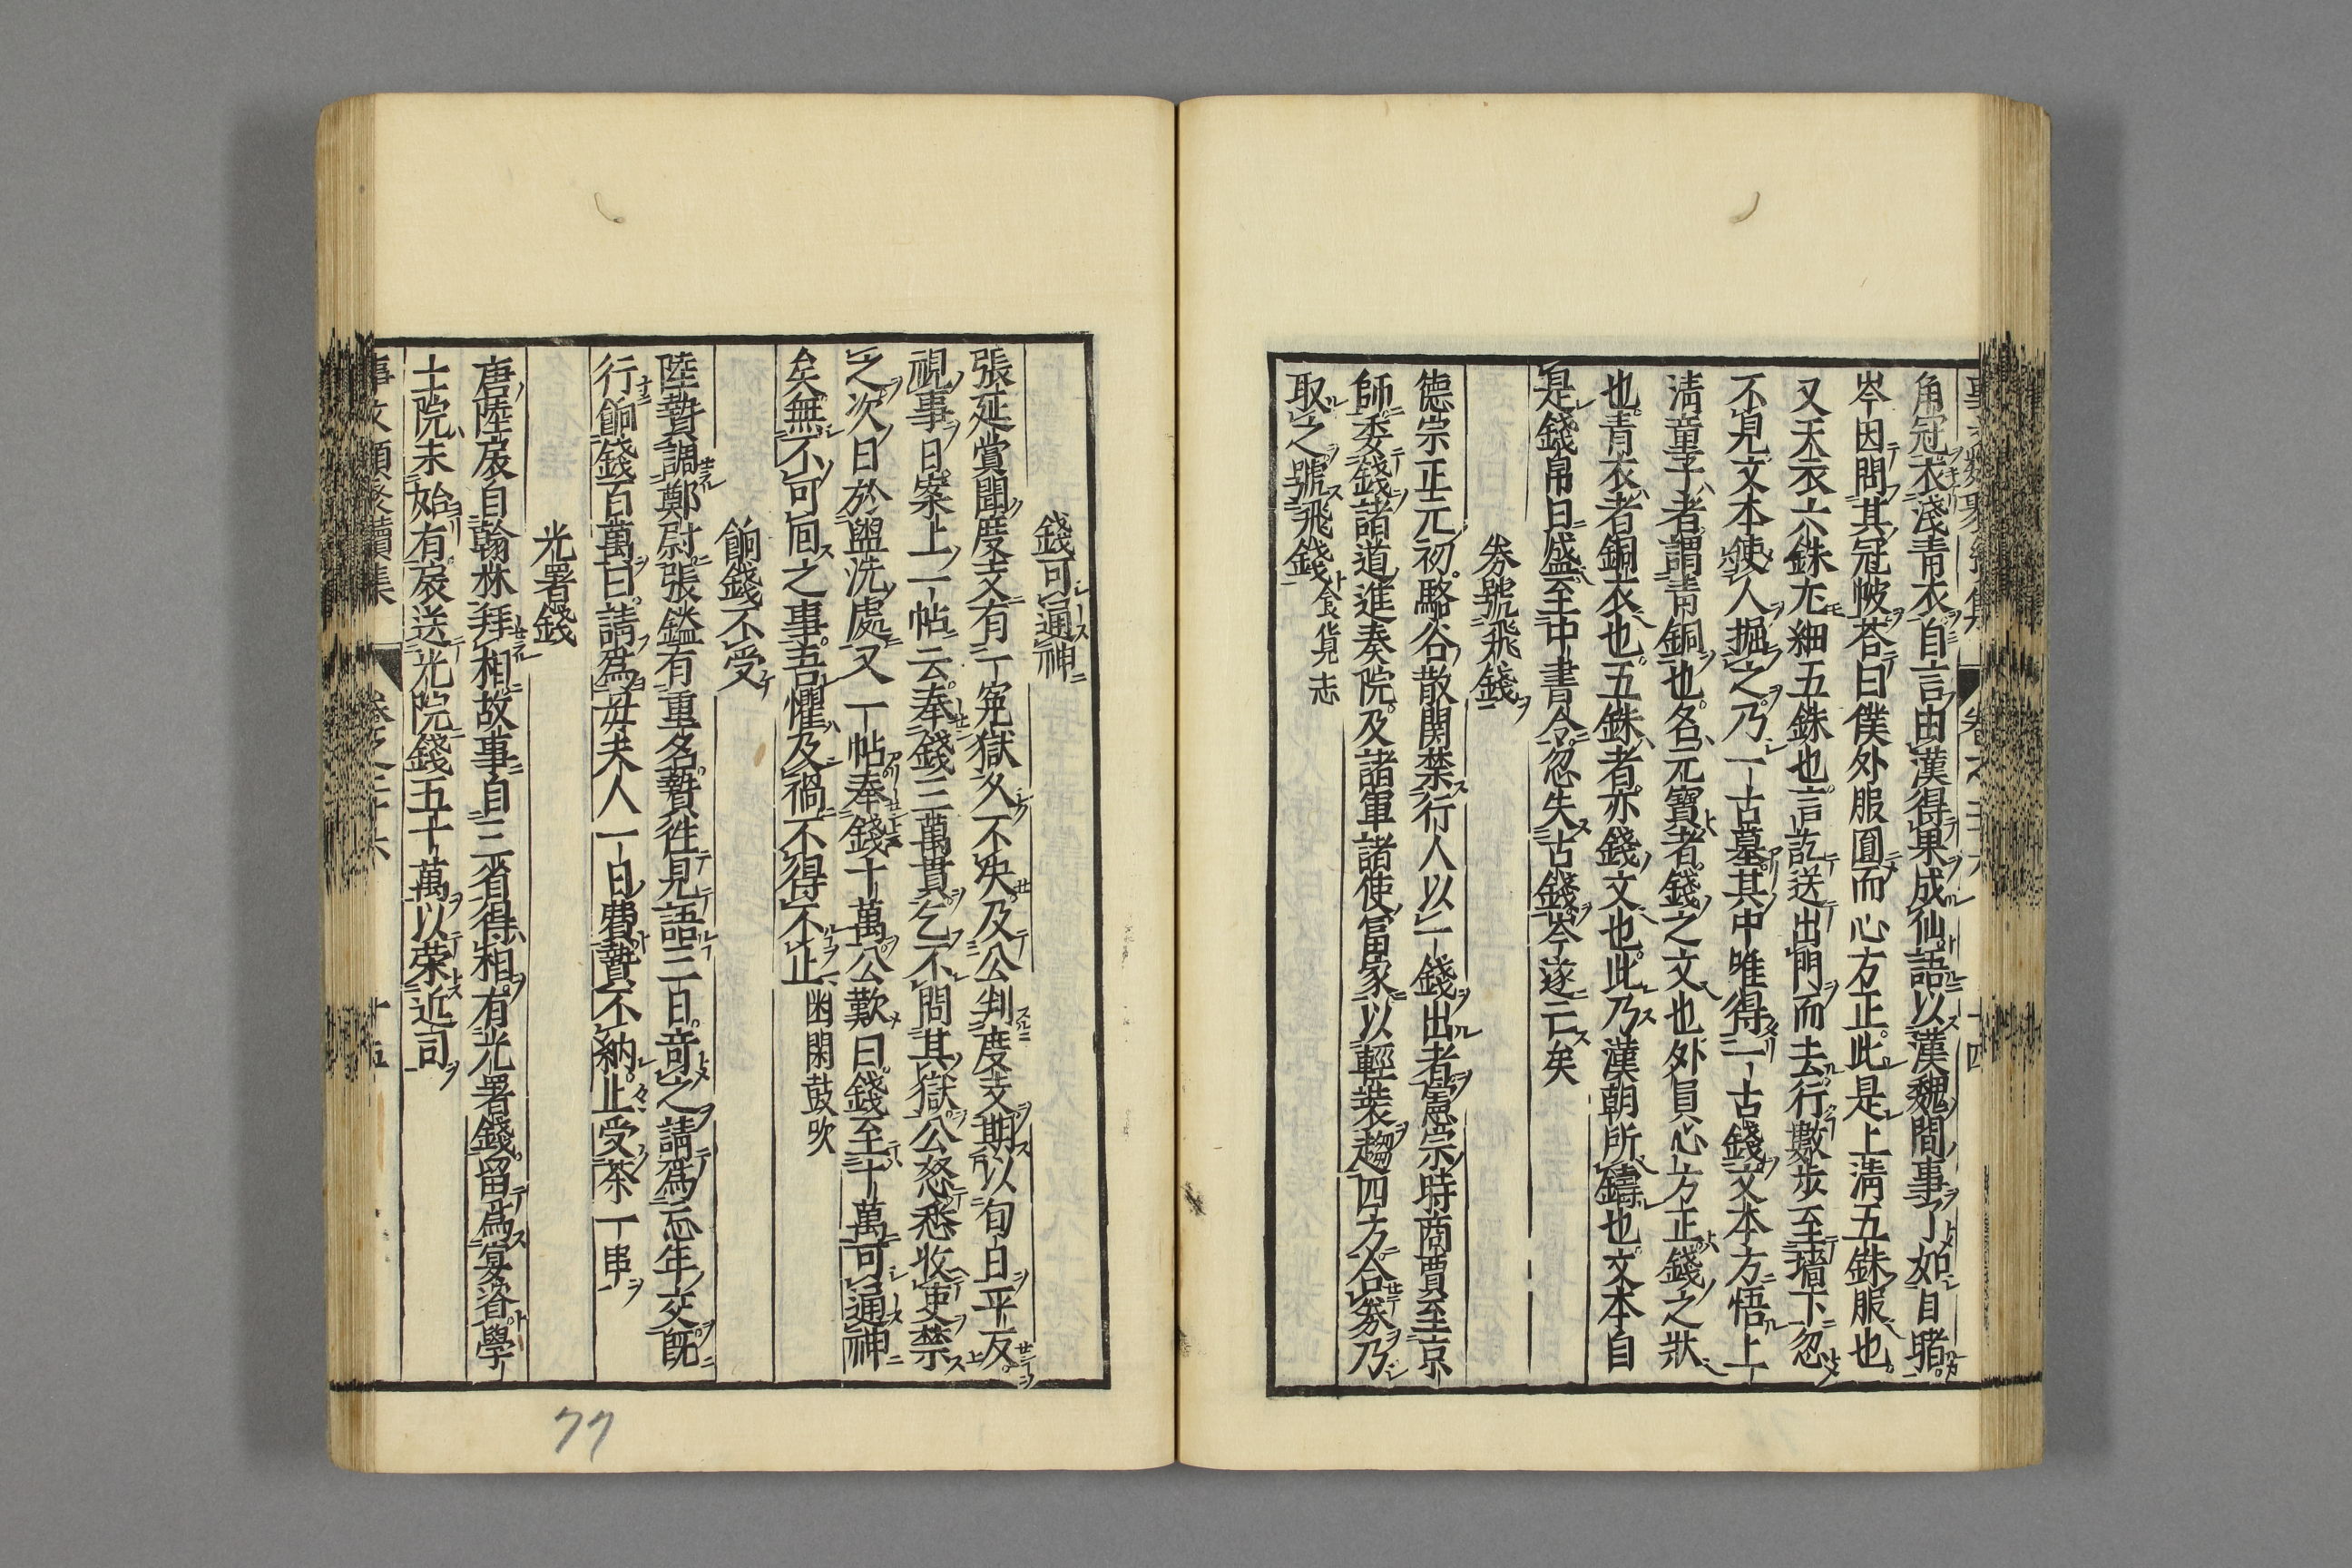 角冠衣淺青衣自言由漢得果成仙語以漢魏間事了如自睹
岑因問其冠帔荅曰僕外服圓而心方正此是上清五銖服也
又天衣六銖尤細五銖也言訖送出門而去行數步至墻下忽
不見文本使人掘之乃一古墓其中唯得一古錢文本方悟上
清童子者謂青銅也名元寶者錢之文也外員心方正錢之狀
也青衣者銅衣也五銖者亦錢文也此乃漢朝所鑄也文本自
是錢帛日盛至中書令忽失古錢岑遂亡矣
券號飛錢
德宗正元初駱谷散関禁行人以一錢出者憲宗時商賈至京
師委錢諸道進奏院及諸軍諸使富家以輕裝趨四方合券乃
取之號飛錢食貨志
錢可通神
張延賞聞度支有一寃獄久不决及公判度支期以旬日平反
視事日案上一帖云奉錢三萬貫乞不問其獄公怒悉收吏禁
之次日於盥洗處又一帖奉錢十萬公歎曰錢至十萬可通神
矣無不可回之事吾懼及禍不得不止幽閑鼓吹
餉錢不受
陸贄調鄭尉張鎰有重名贄徃見語三日竒之請爲忘年交旣
行餉錢百萬曰請爲母夫人一日費贄不納止受茶一串
光署錢
唐陸扆自翰林拜相故事自三省得相有光署錢留爲宴資學
士院未始有扆送光院錢五十萬以榮近司
事文類聚續集 卷之二十六 十五